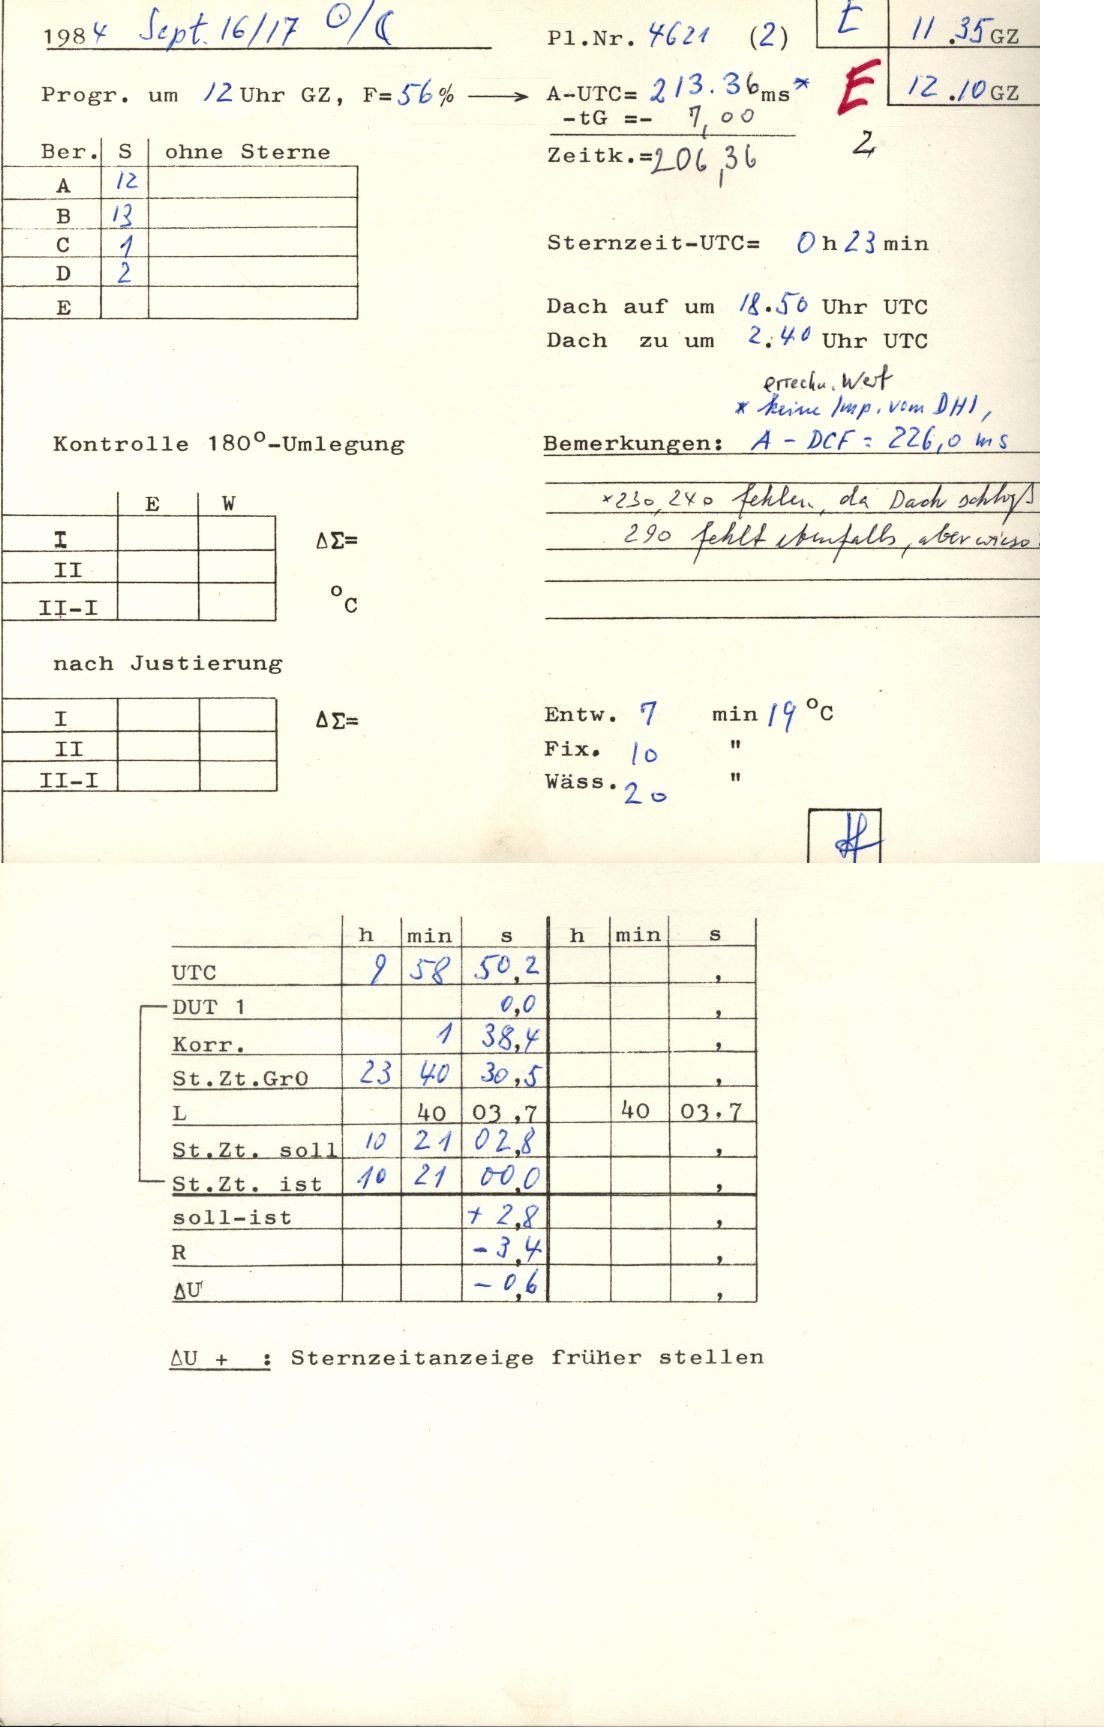 1984 Sept. 16/17 ☉/☾ Pl.Nr. 4621 (2) E 11.35 GZ
Progr. um 12 Uhr GZ, F=56% → A-UTC= 213.36 ms* E 12.10 GZ
-tG =- 7,00
Ber. S ohne Sterne Zeitk.=206,36 2
A 12
B 13
C 1 Sternzeit-UTC= 0 h 23 min
D 2
E Dach auf um 18.50 Uhr UTC
Dach zu um 2.40 Uhr UTC
errechn. Wert
* keine Imp. vom DHI,
Kontrolle 180°-Umlegung Bemerkungen: A - DCF = 226,0 ms
E W *230, 240 fehlen, da Dach schloß
I ΔΣ= 290 fehlt ebenfalls, aber wieso
II
II-I °C
nach Justierung
I ΔΣ= Entw. 7 min 19 °C
II Fix. 10 "
II-I Wäss. 20 "
h min s h min s
UTC 9 58 50,2 ,
DUT 1 0,0 ,
Korr. 1 38,4 ,
St.Zt.Gr0 23 40 30,5 ,
L 40 03,7 40 03,7
St.Zt. soll 10 21 02,8 ,
St.Zt. ist 10 21 00,0 ,
soll-ist + 2,8 ,
R - 3,4 ,
ΔU - 0,6 ,
ΔU + : Sternzeitanzeige früher stellen